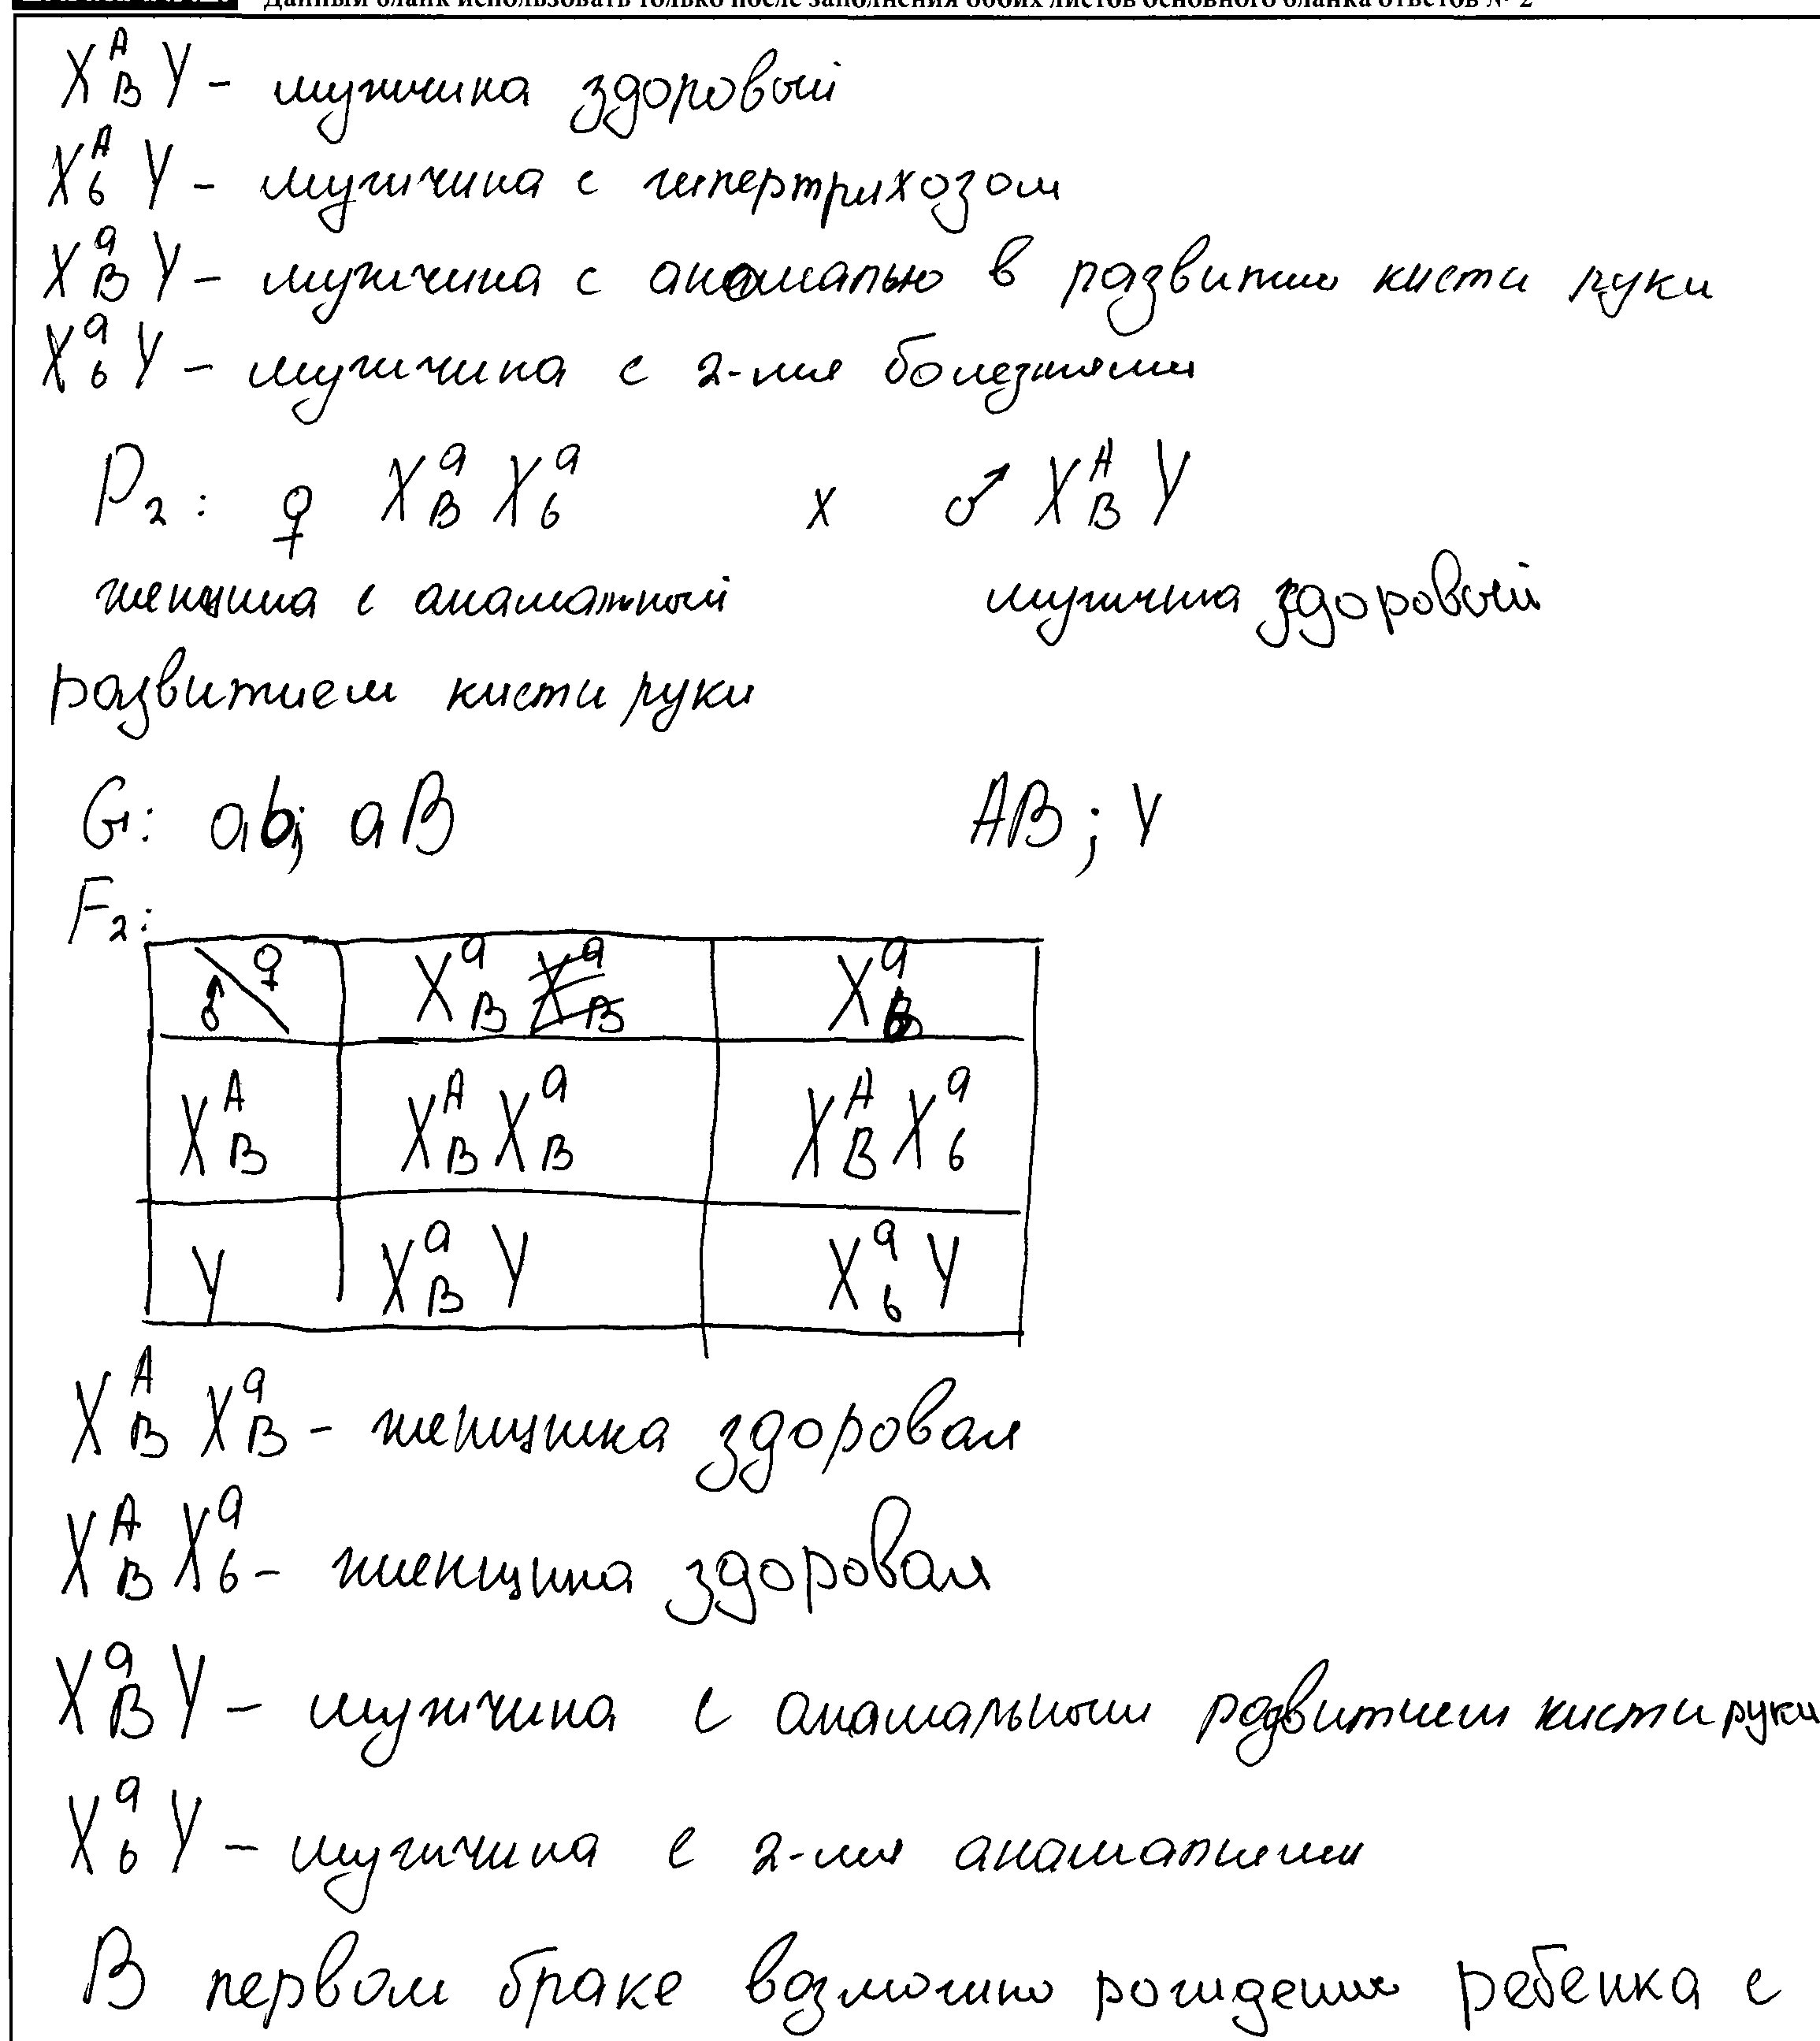 Данный бланк использовать только после заполнения обоих листов основного бланка ответов № 2
X^A_B Y - мужчина здоровый
X^A_b Y - мужчина с гипертрихозом
X^a_B Y - мужчина с аномалью в развитии кисти руки
X^a_b Y - мужчина с 2-мя болезнями
P₂: ♀ X^a_B X^a_b x ♂ X^A_B Y
женщина с анамальный мужчина здоровый
развитием кисти руки
G: ab; aB AB; Y
F₂:
♂ \ ♀ X^a_B X^a_b
X^A_B X^A_B X^a_B X^A_B X^a_b
Y X^a_B Y X^a_b Y
X^A_B X^a_B - женщина здоровая
X^A_B X^a_b - женщина здоровая
X^a_B Y - мужчина с анамальным развитием кисти руки
X^a_b Y - мужчина с 2-мя анамалиями
В первом браке возможно рождение ребенка с